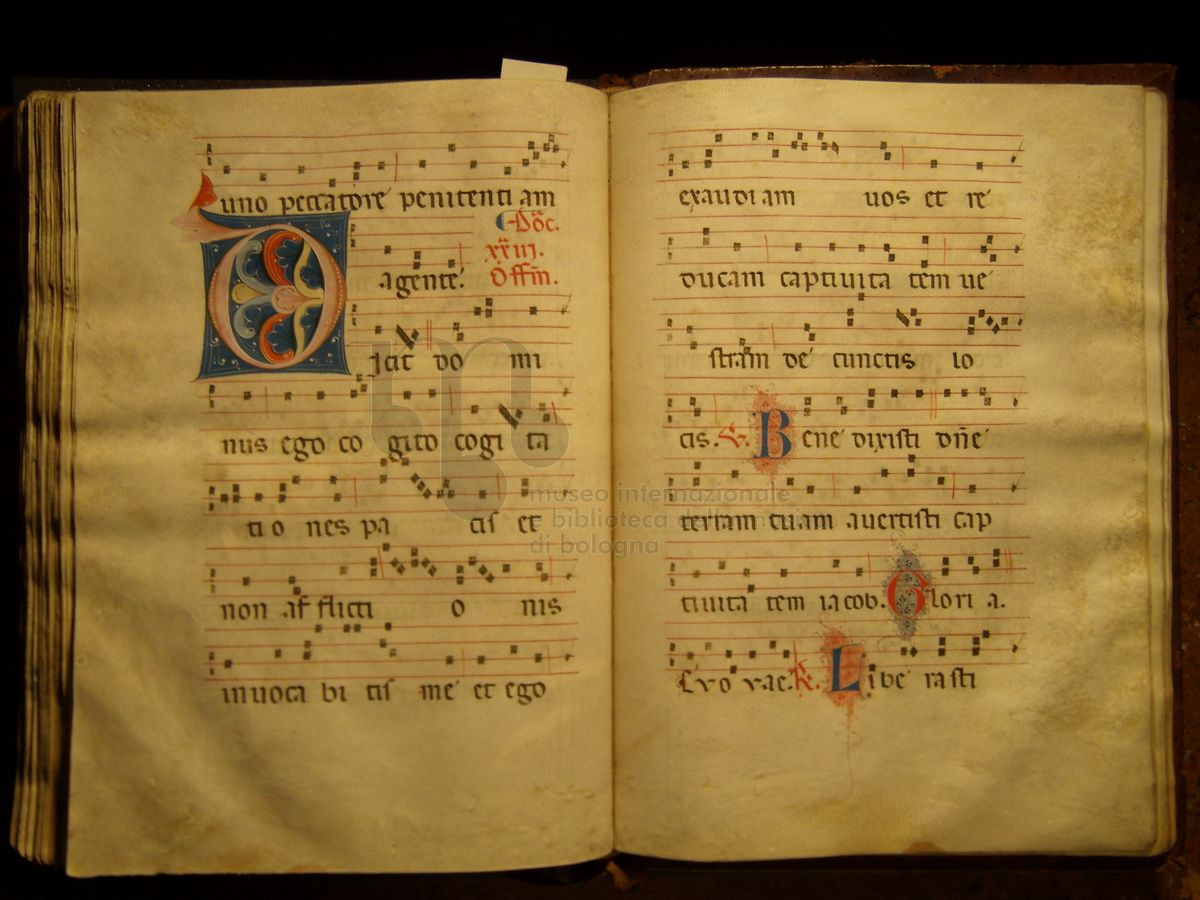 uno peccatore penitenti am
Dōc.
agente. xxiii.
Offm̄.
Dicit do mi
nus ego co gito cogi ta
ti o nes pa cis et
non af flicti o nis
inuoca bi tis me et ego
exaudi am uos et re
ducam captiuita tem ue
stram de cunctis lo
cis. V. Bene dixisti dn̄e
terram tuam auertisti cap
tiuita tem iacob. Glori a.
Evo vae. R. Libe rasti
museo internazionale
e biblioteca della musica
di bologna